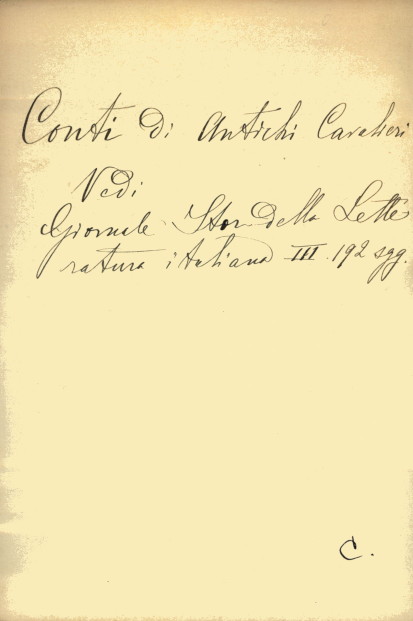 Conti di Antichi Cavalieri
Vedi
Giornale Stor. della Lette
ratura italiana III. 192 sgg.
C.